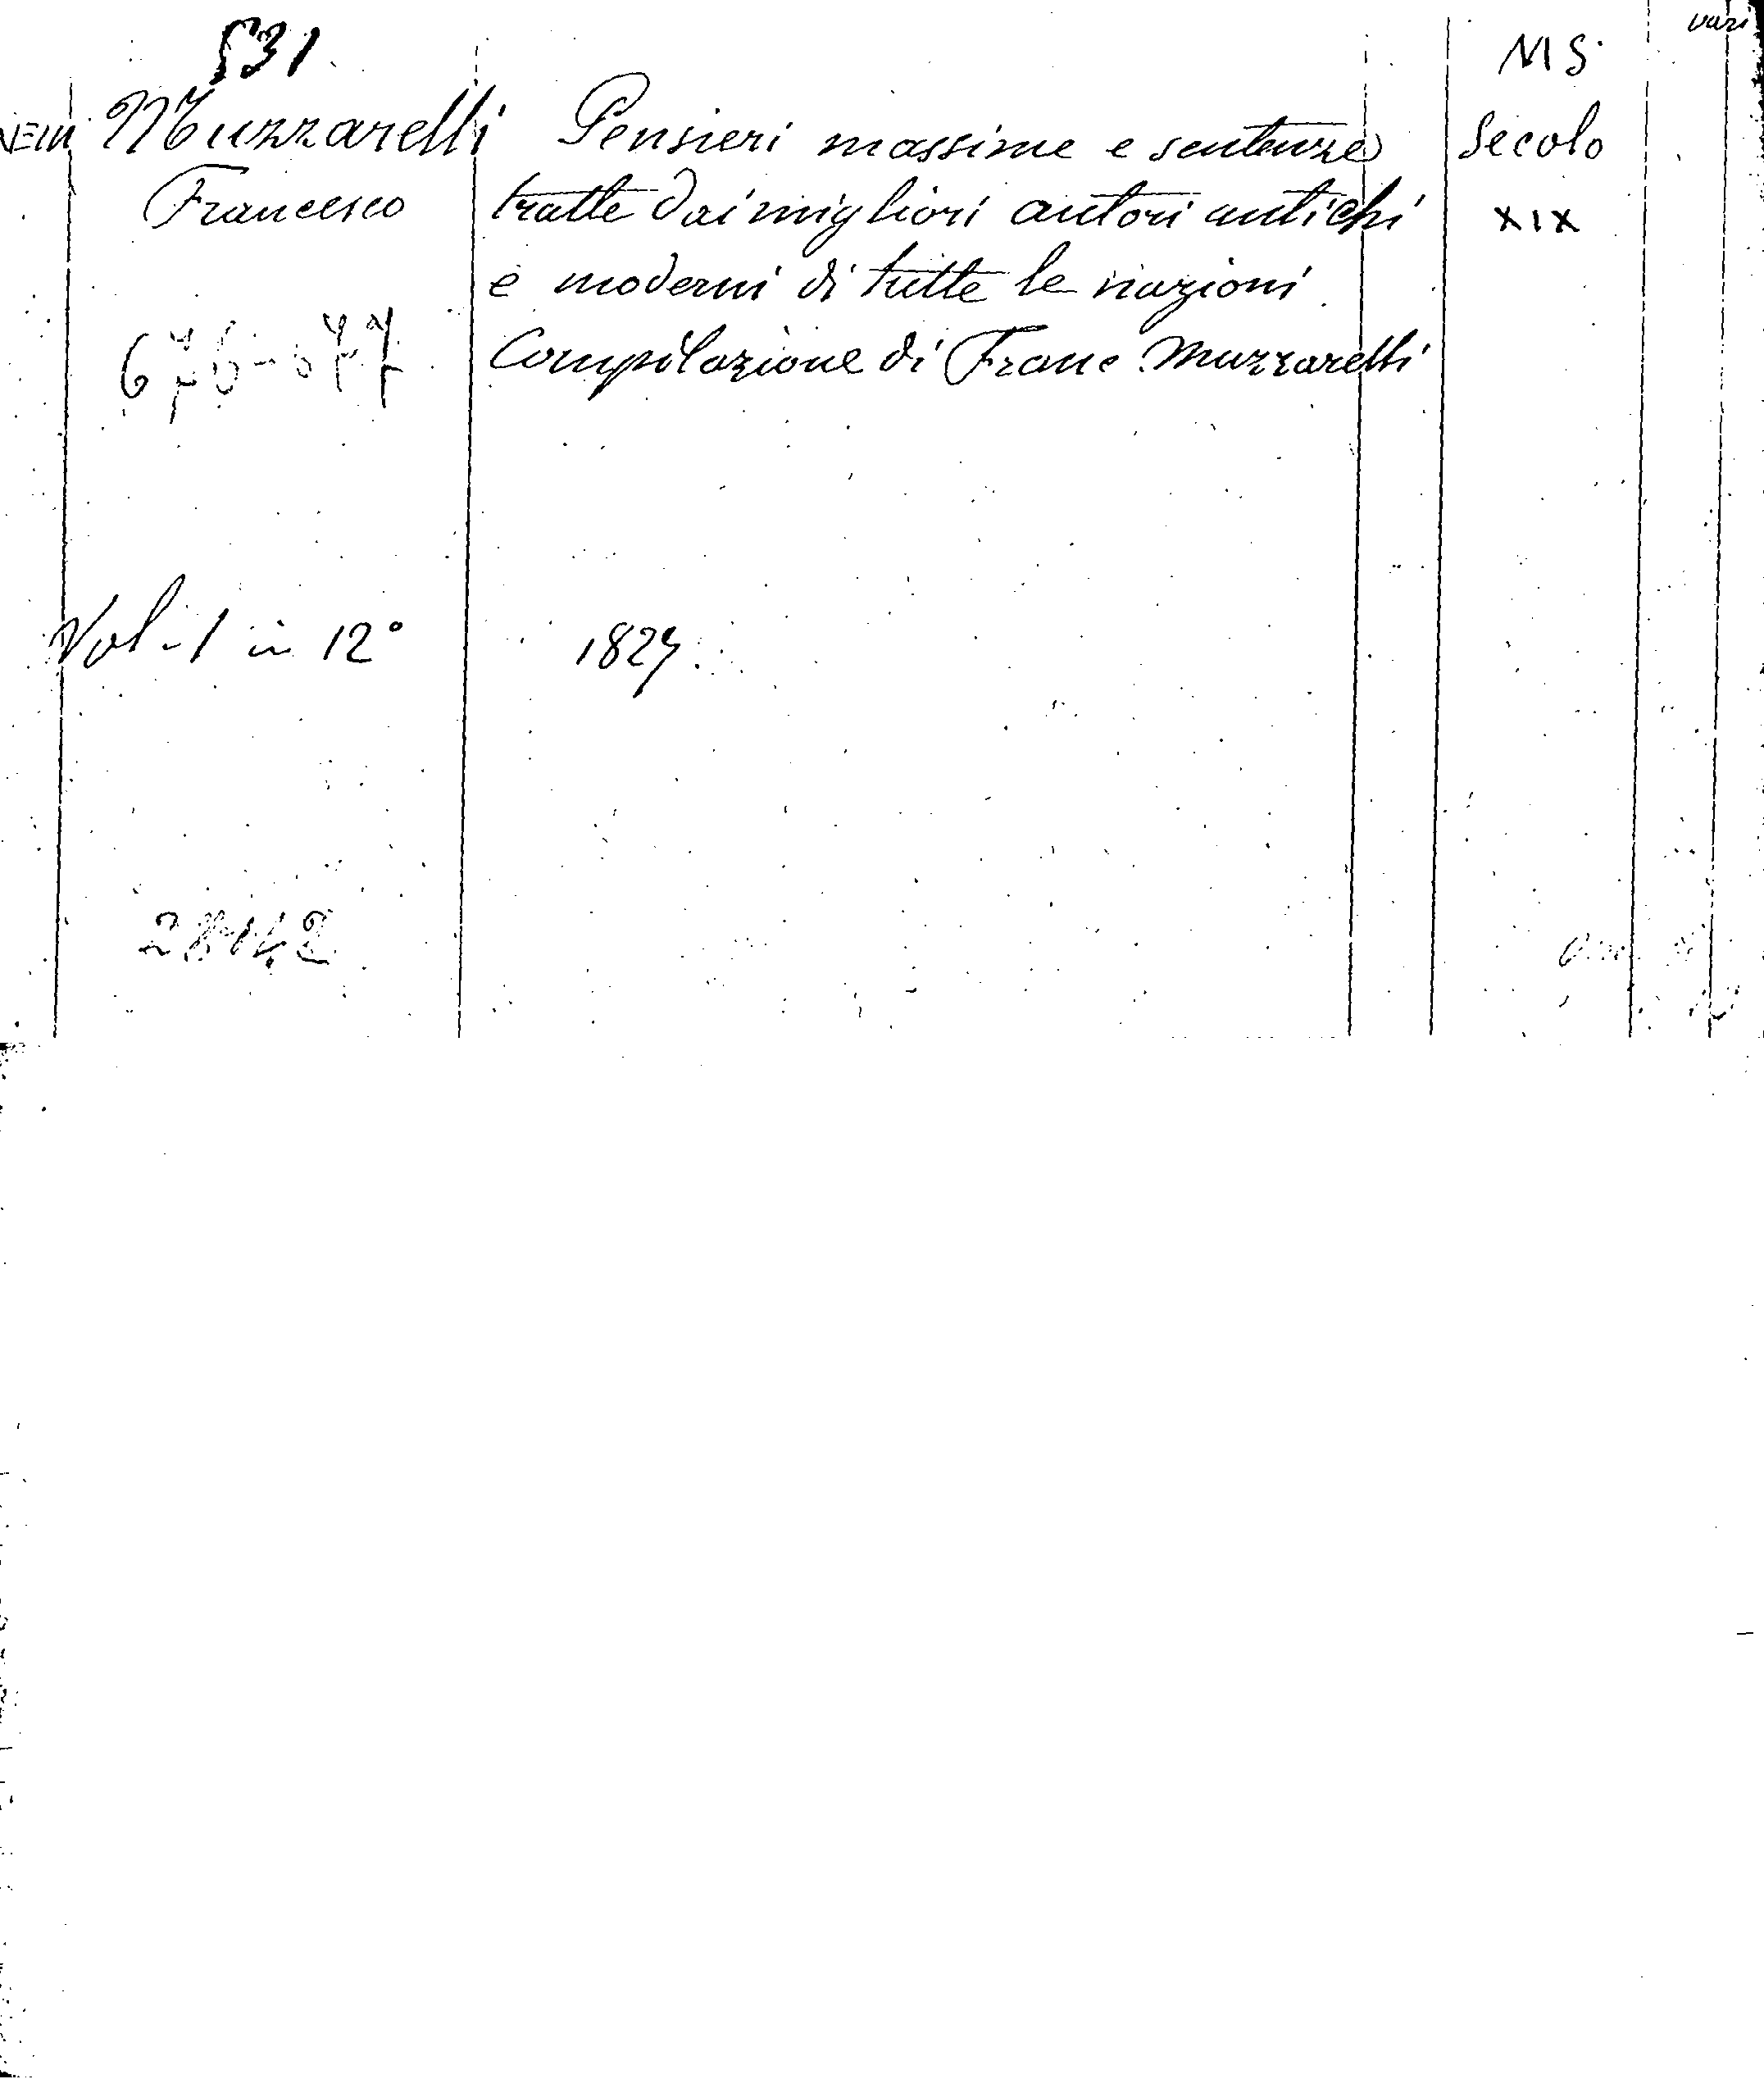 531
vari
MS.
Muzzarelli
Francesco
Pensieri massime e sentenze
tratte dai migliori autori antichi
e moderni di tutte le nazioni
Compilazione di Franc Muzzarelli
Secolo
XIX
676-677
Vol-1 in 12°